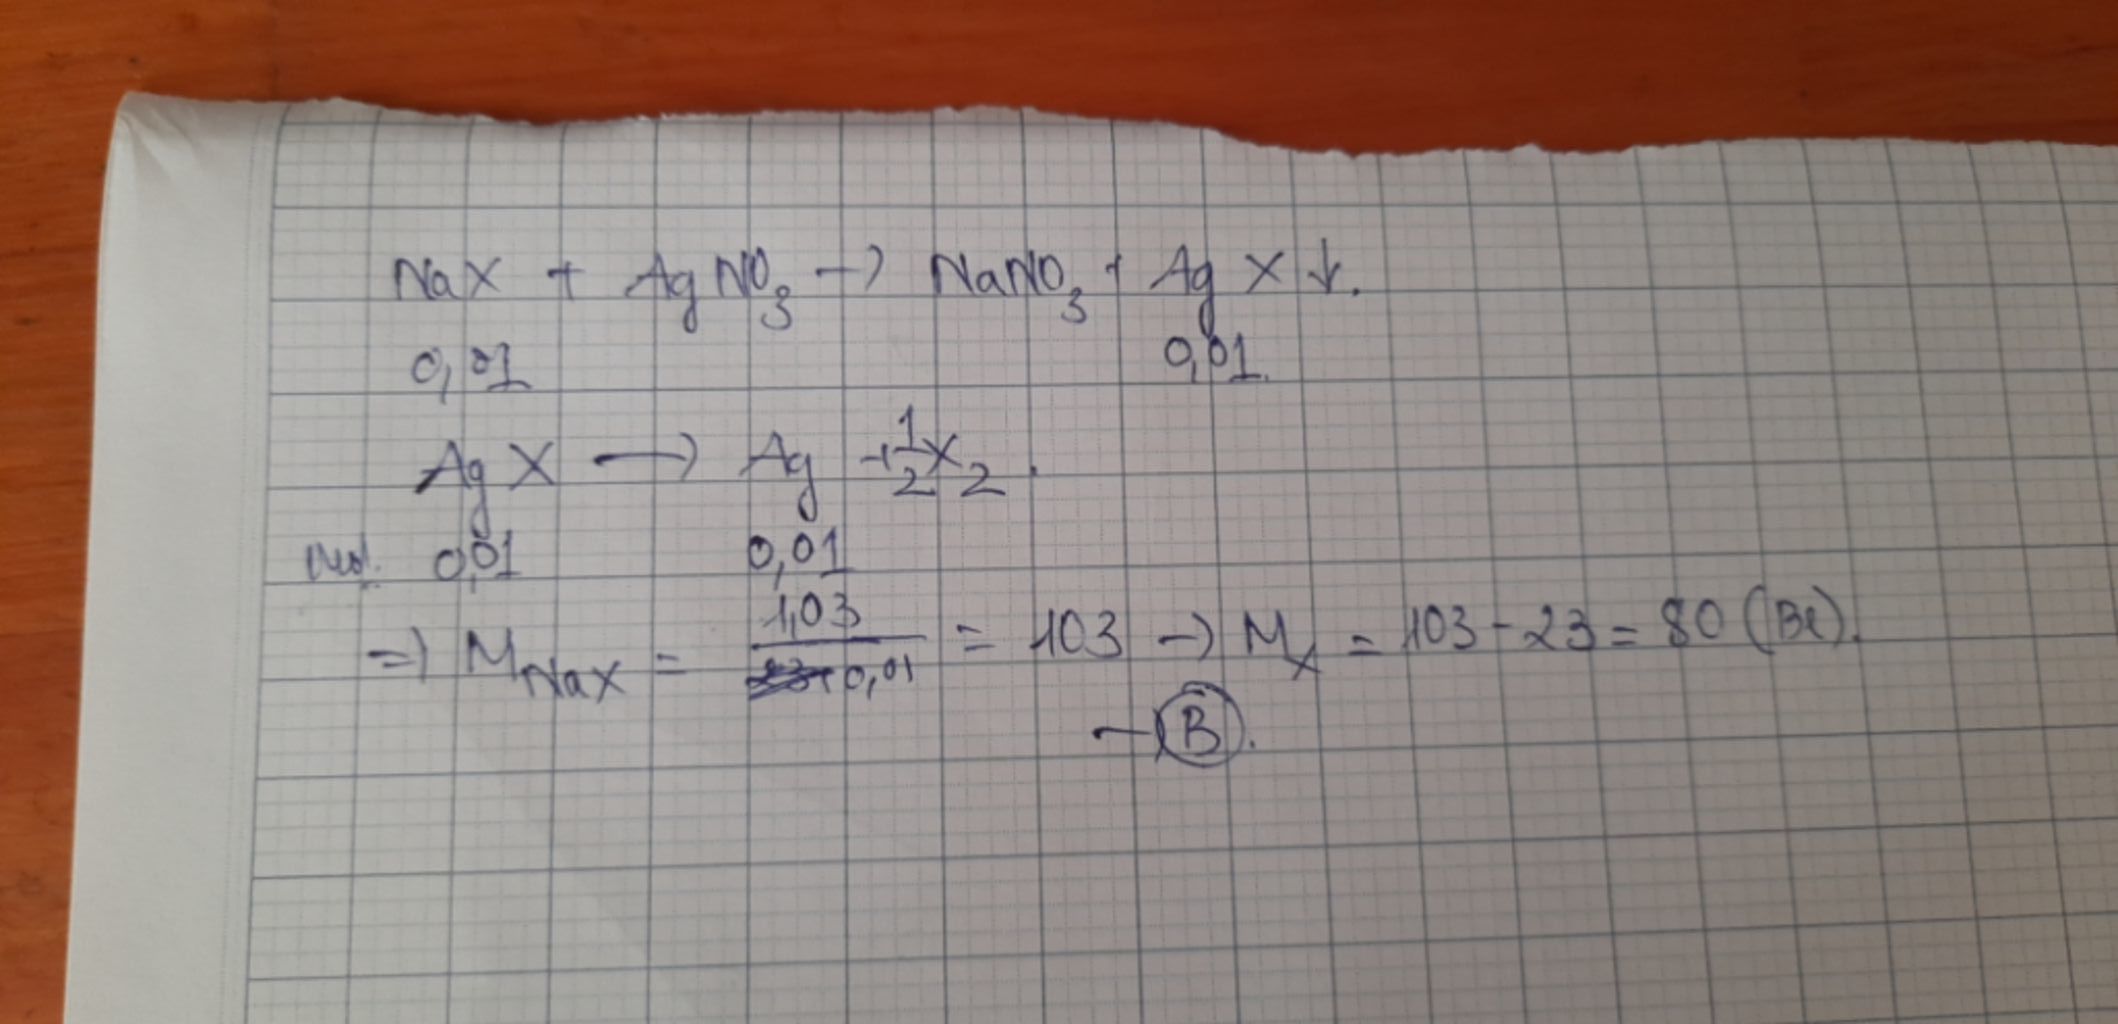 NaX + AgNO₃ → NaNO₃ + AgX ↓.
0,01 0,01.
AgX → Ag + 1/2 X₂.
mol. 0,01 0,01
=> M_NaX = 1,03 / 0,01 = 103 → M_X = 103 - 23 = 80 (Br).
→ B.